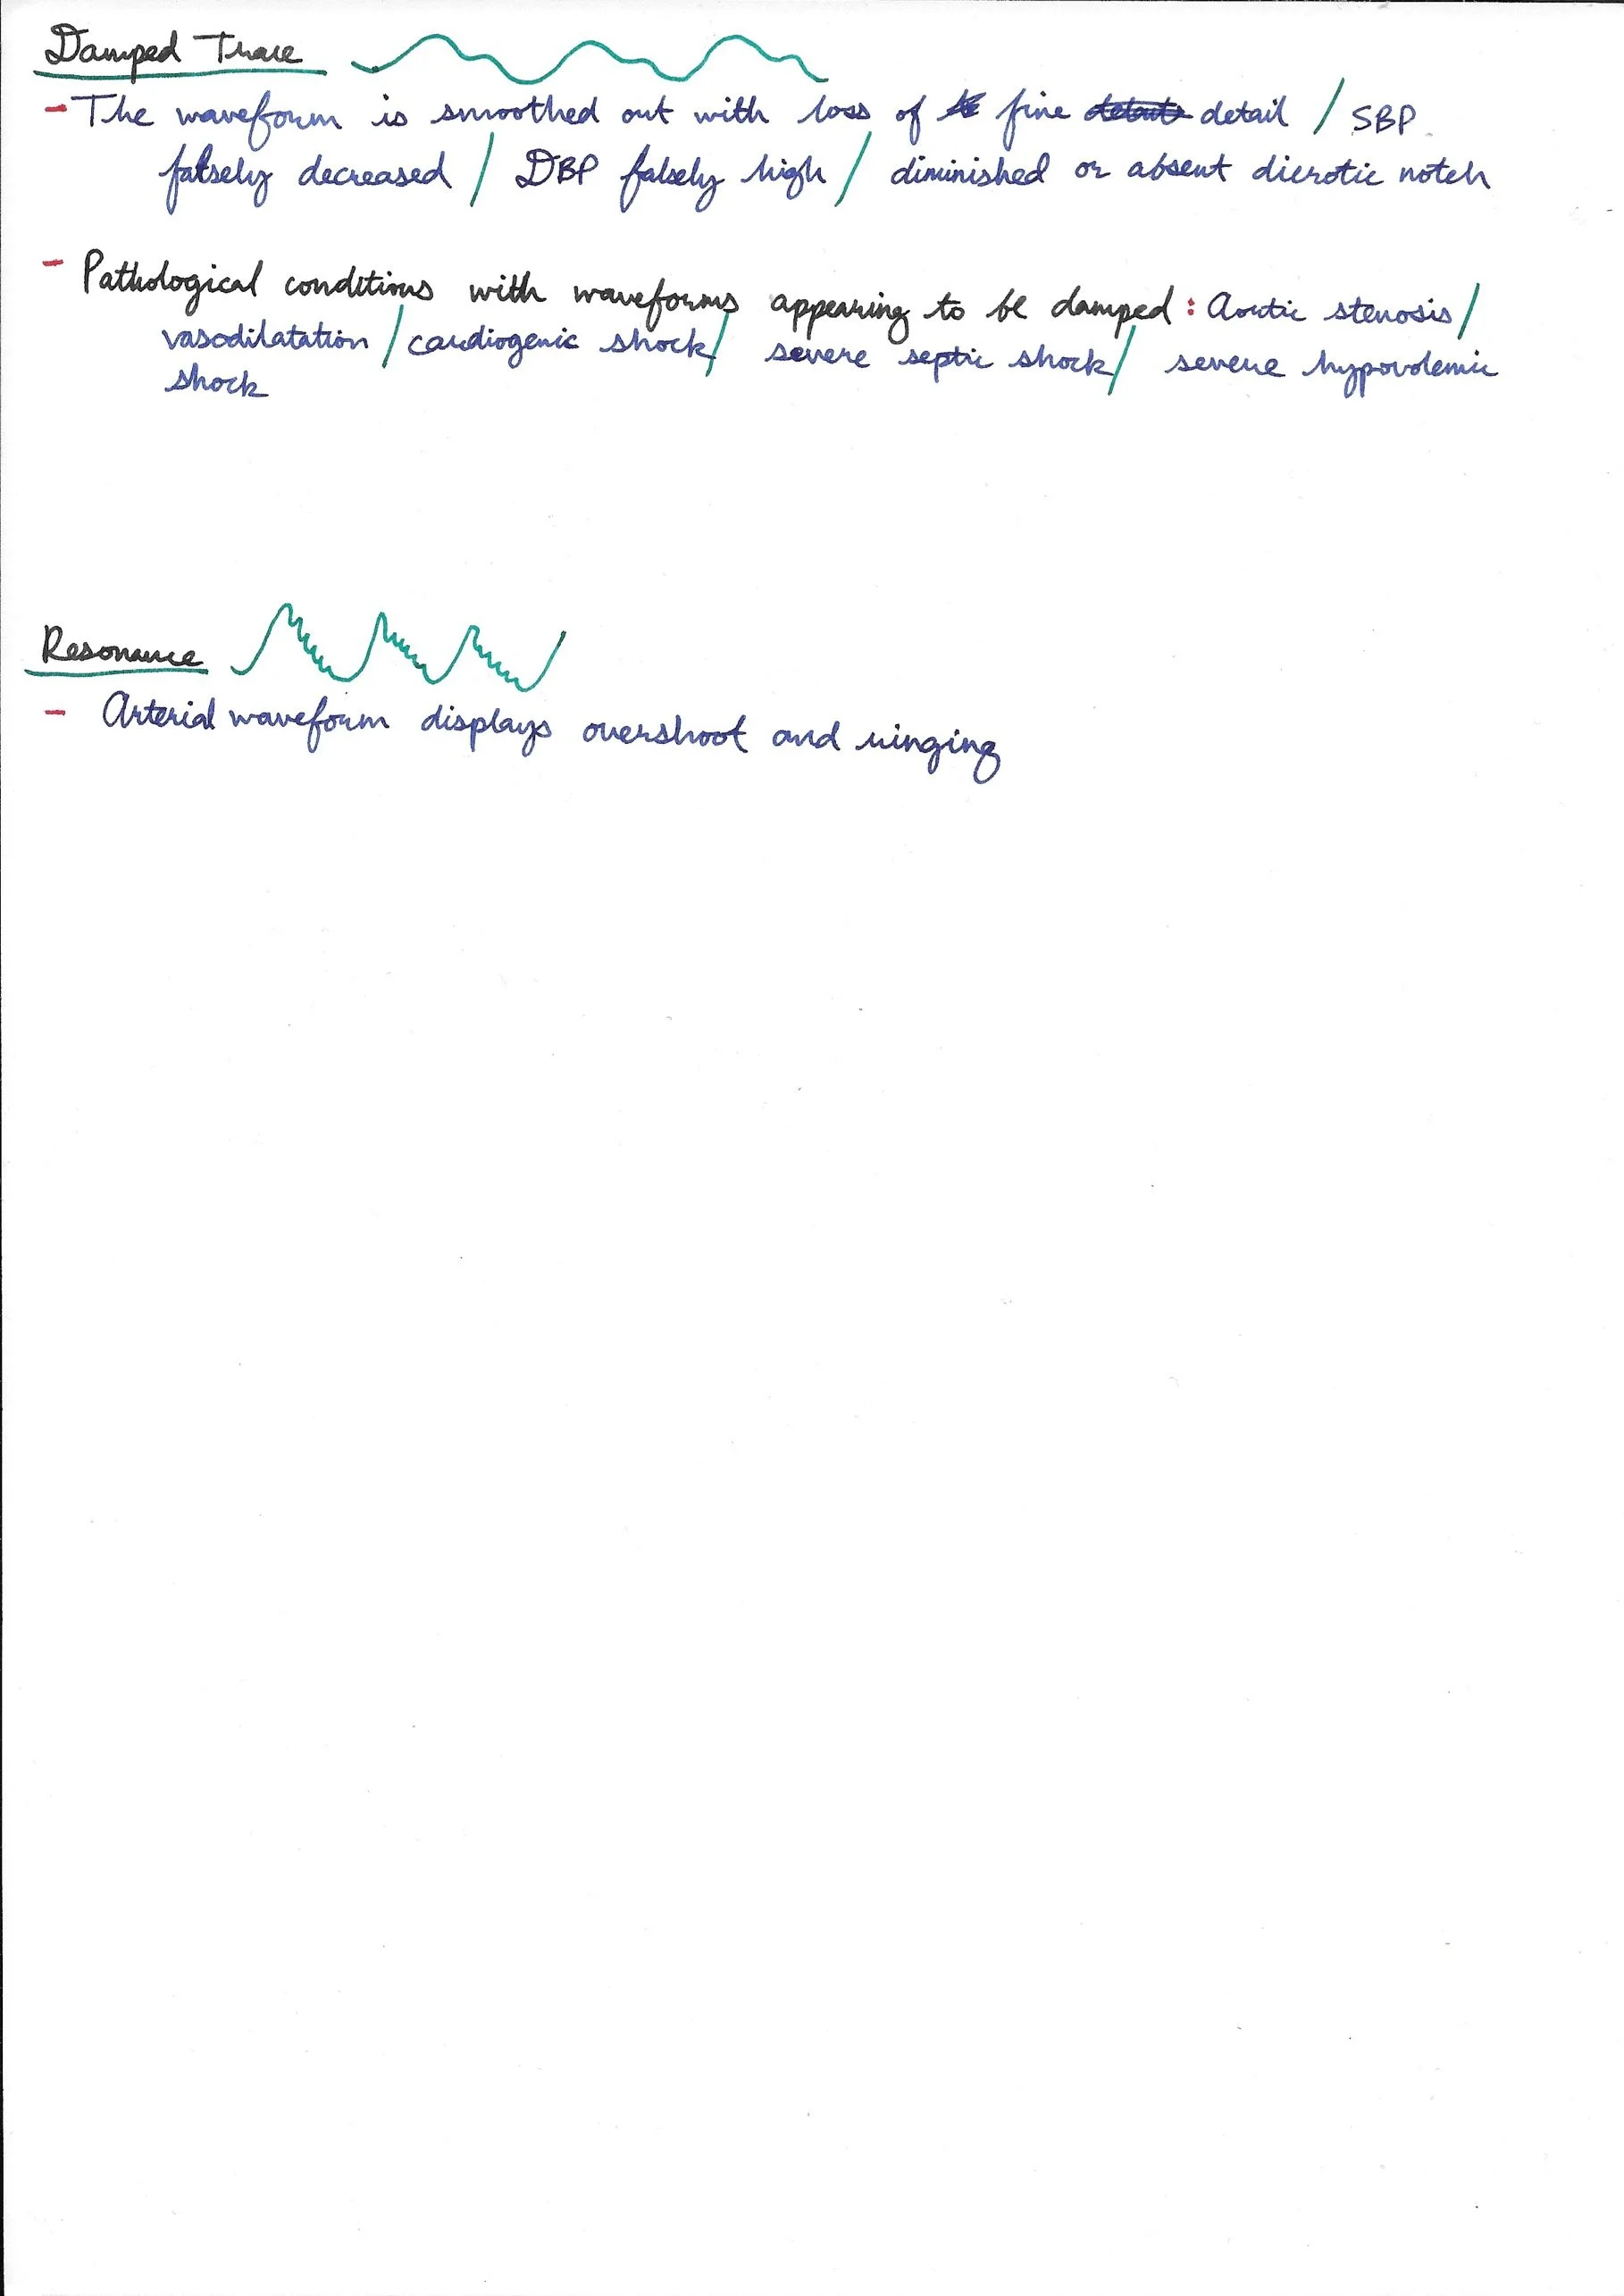 Damped Trace
- The waveform is smoothed out with loss of fine detail / SBP
falsely decreased / DBP falsely high / diminished or absent dicrotic notch
- Pathological conditions with waveforms appearing to be damped : Aortic stenosis /
vasodilatation / cardiogenic shock / severe septic shock / severe hypovolemic
shock
Resonance
- Arterial waveform displays overshoot and ringing